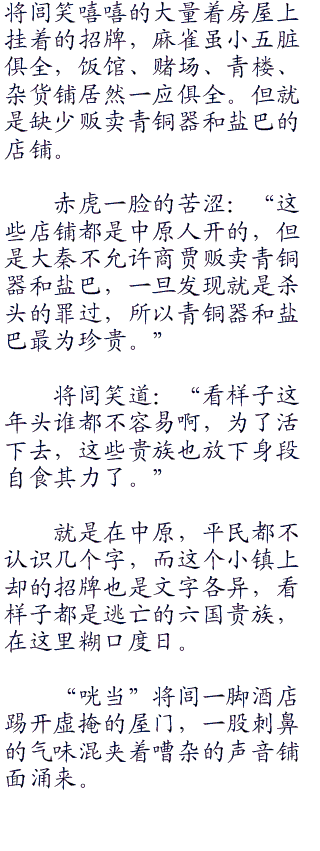 将闾笑嘻嘻的大量着房屋上
挂着的招牌，麻雀虽小五脏
俱全，饭馆、赌场、青楼、
杂货铺居然一应俱全。但就
是缺少贩卖青铜器和盐巴的
店铺。
赤虎一脸的苦涩：“这
些店铺都是中原人开的，但
是大秦不允许商贾贩卖青铜
器和盐巴，一旦发现就是杀
头的罪过，所以青铜器和盐
巴最为珍贵。”
将闾笑道：“看样子这
年头谁都不容易啊，为了活
下去，这些贵族也放下身段
自食其力了。”
就是在中原，平民都不
认识几个字，而这个小镇上
却的招牌也是文字各异，看
样子都是逃亡的六国贵族，
在这里糊口度日。
“咣当”将闾一脚酒店
踢开虚掩的屋门，一股刺鼻
的气味混夹着嘈杂的声音铺
面涌来。